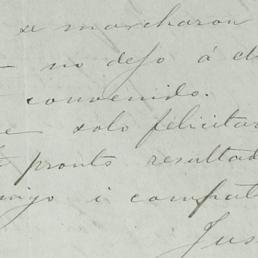 se marcharon
no dejo á
convenido.
solo felicitar
pronto resultad
i compat
Jus